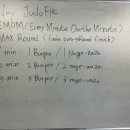 for JudoFit
EMOM (Every Minute On the Minute)
MAX Round (1min over→Round finish)
1 min 1 Burpee / 1 Nage-waza
2 min 2 Burpee / 2 nage-waza
3 min 3 Burpee / 3 nage-waza